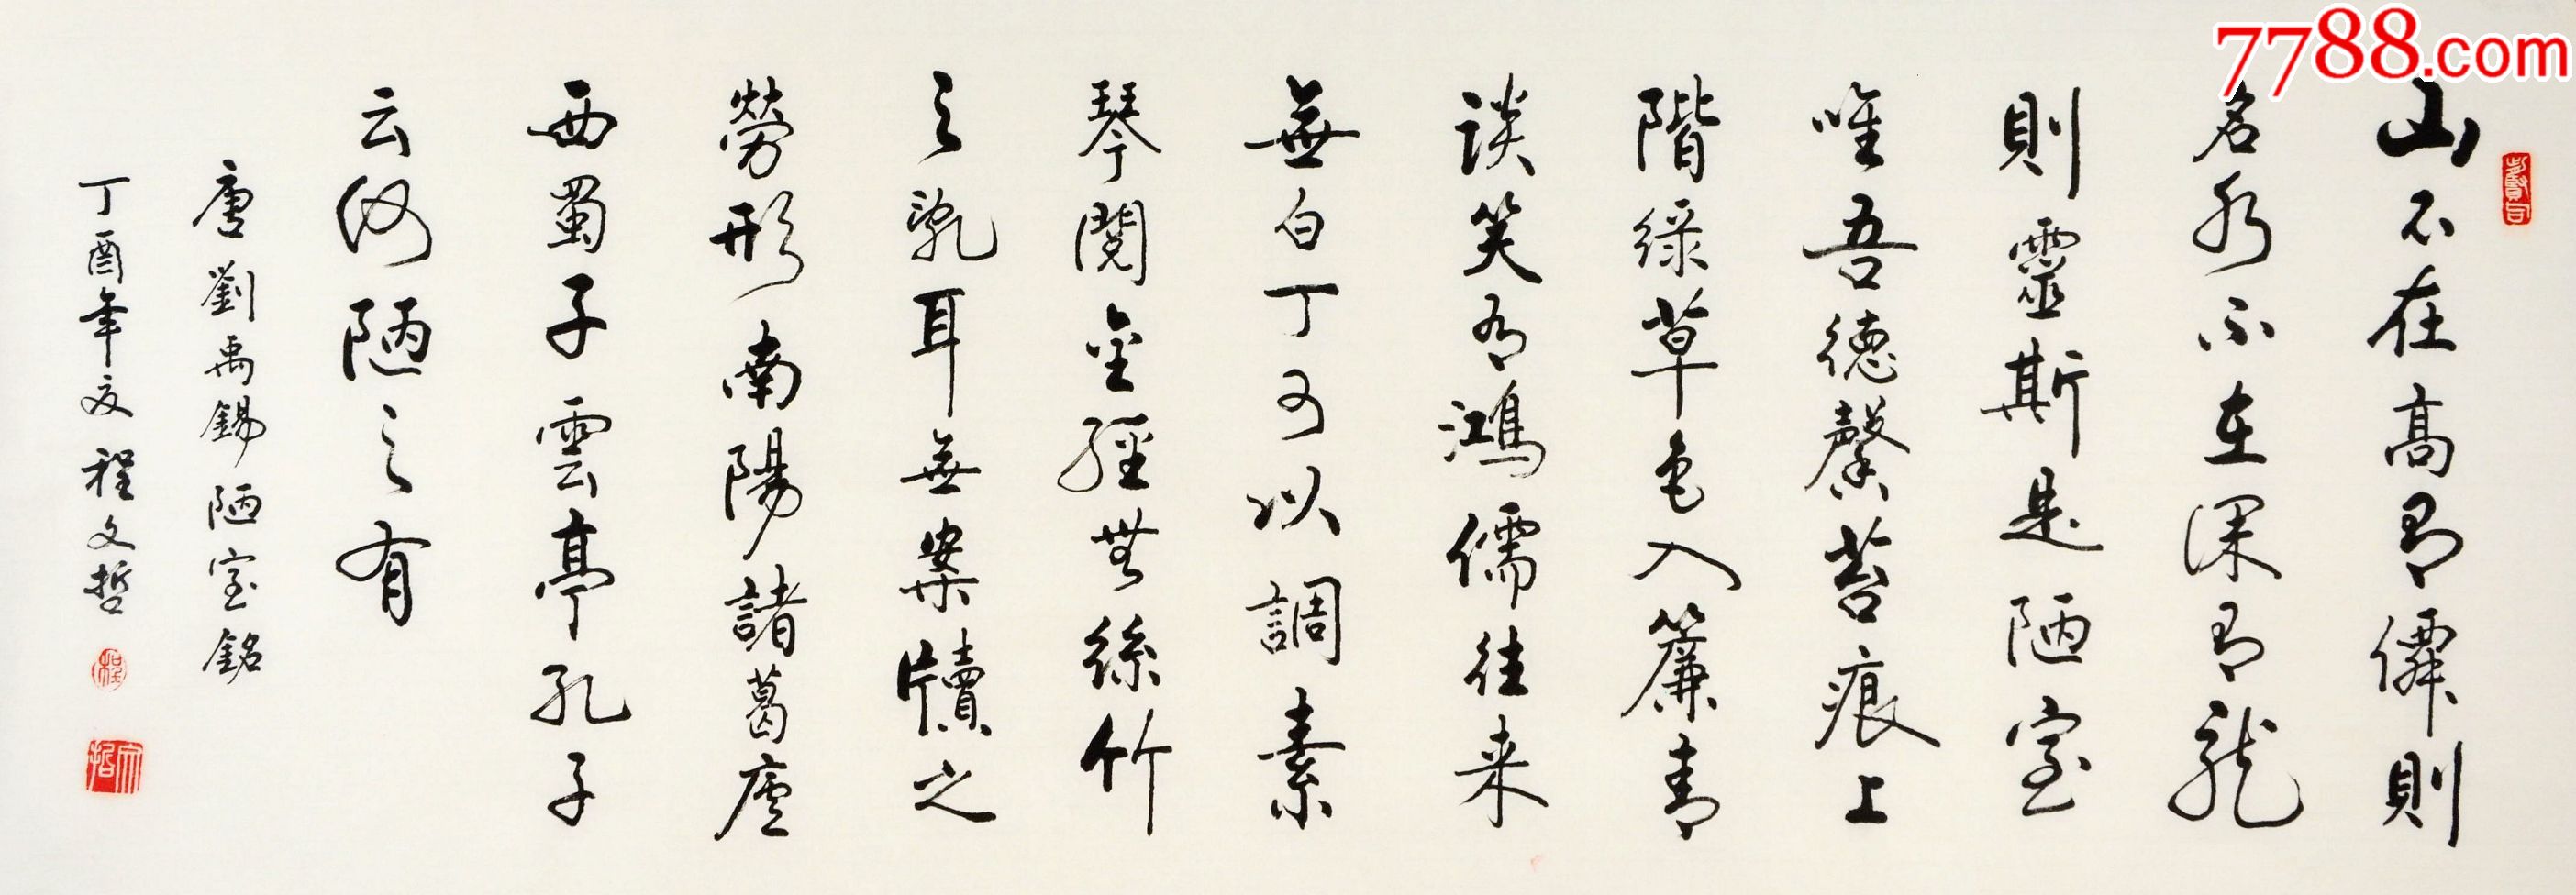 7788.com
山不在高有僊則
名水不在深有龍
則靈斯是陋室
唯吾德馨苔痕上
階綠草色入簾青
談笑有鴻儒往来
無白丁可以調素
琴閱金經無絲竹
之亂耳無案牘之
勞形南陽諸葛廬
西蜀子雲亭孔子
云何陋之有
唐劉禹錫陋室銘
丁酉年夏程文哲
程
文哲